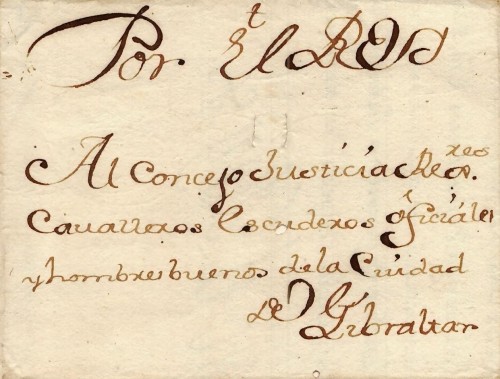 Por El REY
Al Concejo Justicia Regres.
Cavalleros Escuderos oficiales
y hombres buenos de la Ciudad
de Gibraltar